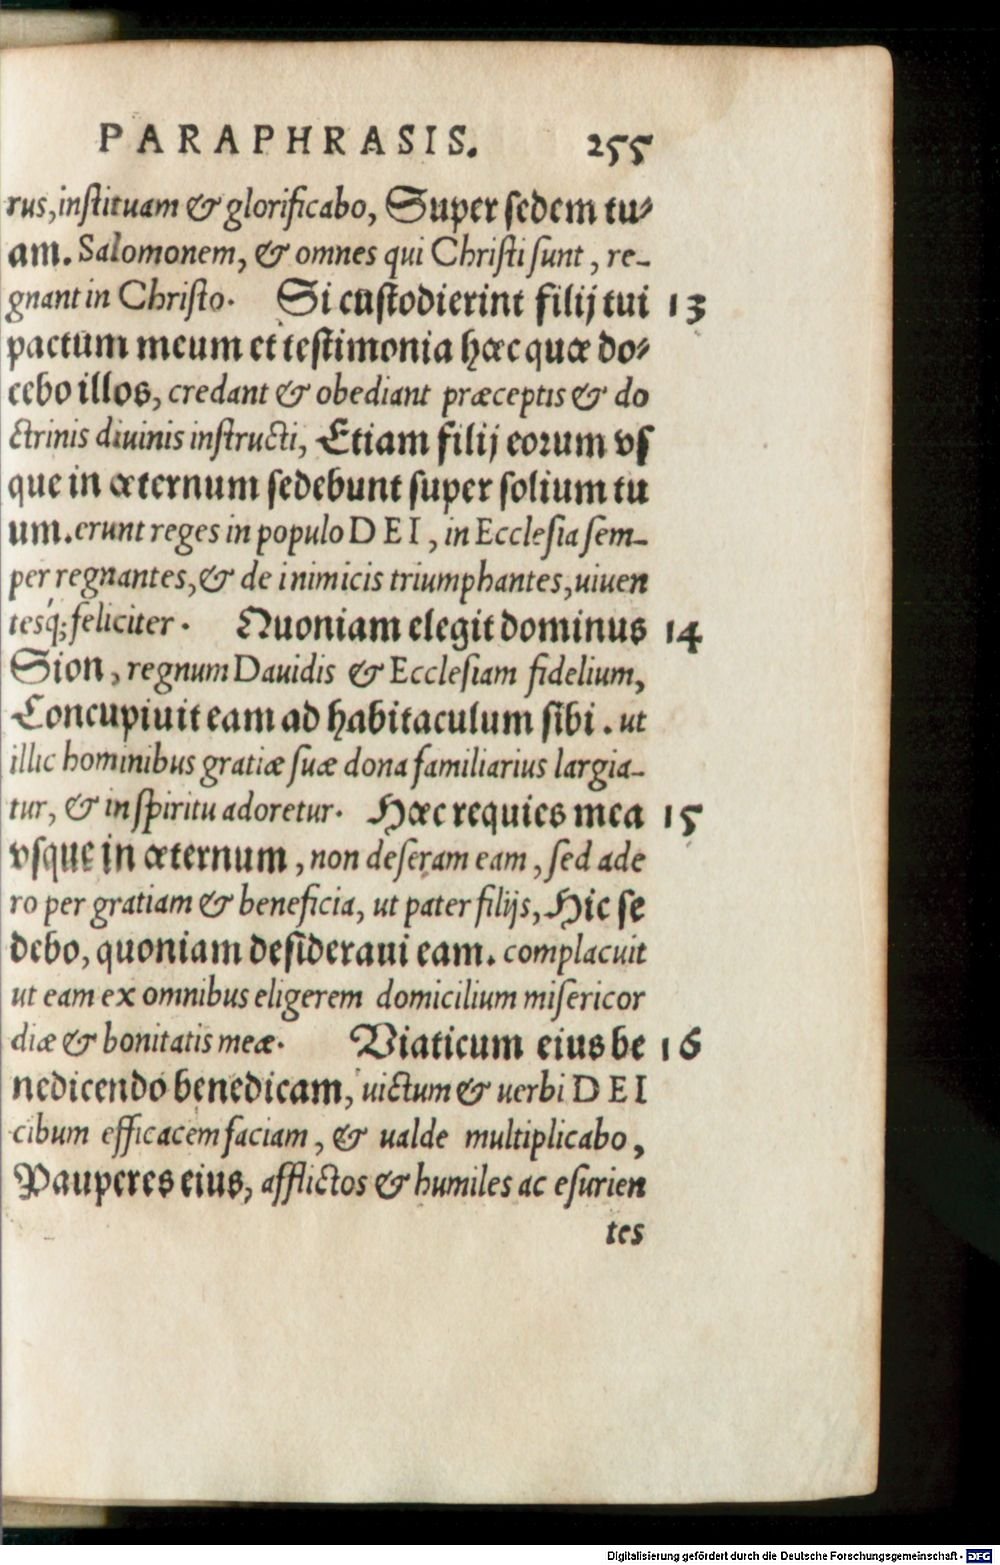 PARAPHRASIS. 255
rus, inſtituam & glorificabo, Super ſedem tu⸗
am. Salomonem, & omnes qui Chriſti ſunt, re-
gnant in Chriſto. Si cuſtodierint filij tui 13
pactum meum et teſtimonia hæc quæ do⸗
cebo illos, credant & obediant præceptis & do
ctrinis diuinis inſtructi, Etiam filij eorum vſ
que in æternum ſedebunt ſuper ſolium tu
um. erunt reges in populo DEI, in Eccleſia ſem-
per regnantes, & de inimicis triumphantes, uiuen
tesq́; feliciter. Quoniam elegit dominus 14
Sion, regnum Dauidis & Eccleſiam fidelium,
Concupiuit eam ad habitaculum ſibi. ut
illic hominibus gratiæ ſuæ dona familiarius largia-
tur, & in ſpiritu adoretur. Hæc requies mea 15
vſque in æternum, non deſeram eam, ſed ade
ro per gratiam & beneficia, ut pater filijs, Hic ſe
debo, quoniam deſideraui eam. complacuit
ut eam ex omnibus eligerem domicilium miſericor
diæ & bonitatis meæ. Viaticum eius be 16
nedicendo benedicam, uictum & uerbi DEI
cibum efficacem faciam, & ualde multiplicabo,
Pauperes eius, afflictos & humiles ac eſurien
tes
Digitalisierung gefördert durch die Deutsche Forschungsgemeinschaft - DFG